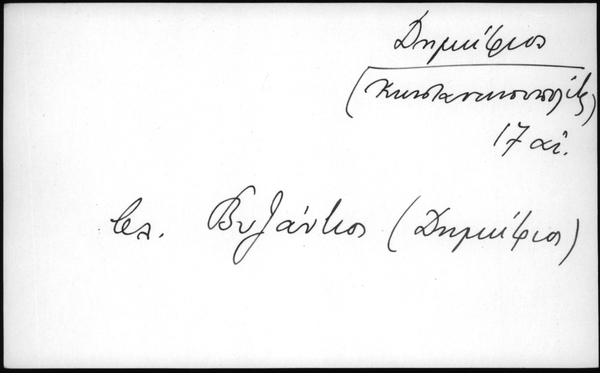 Δημήτριος
(Κωνσταντινουπολίτης)
17 αἰ.
βλ. Βυζάντιος (Δημήτριος)